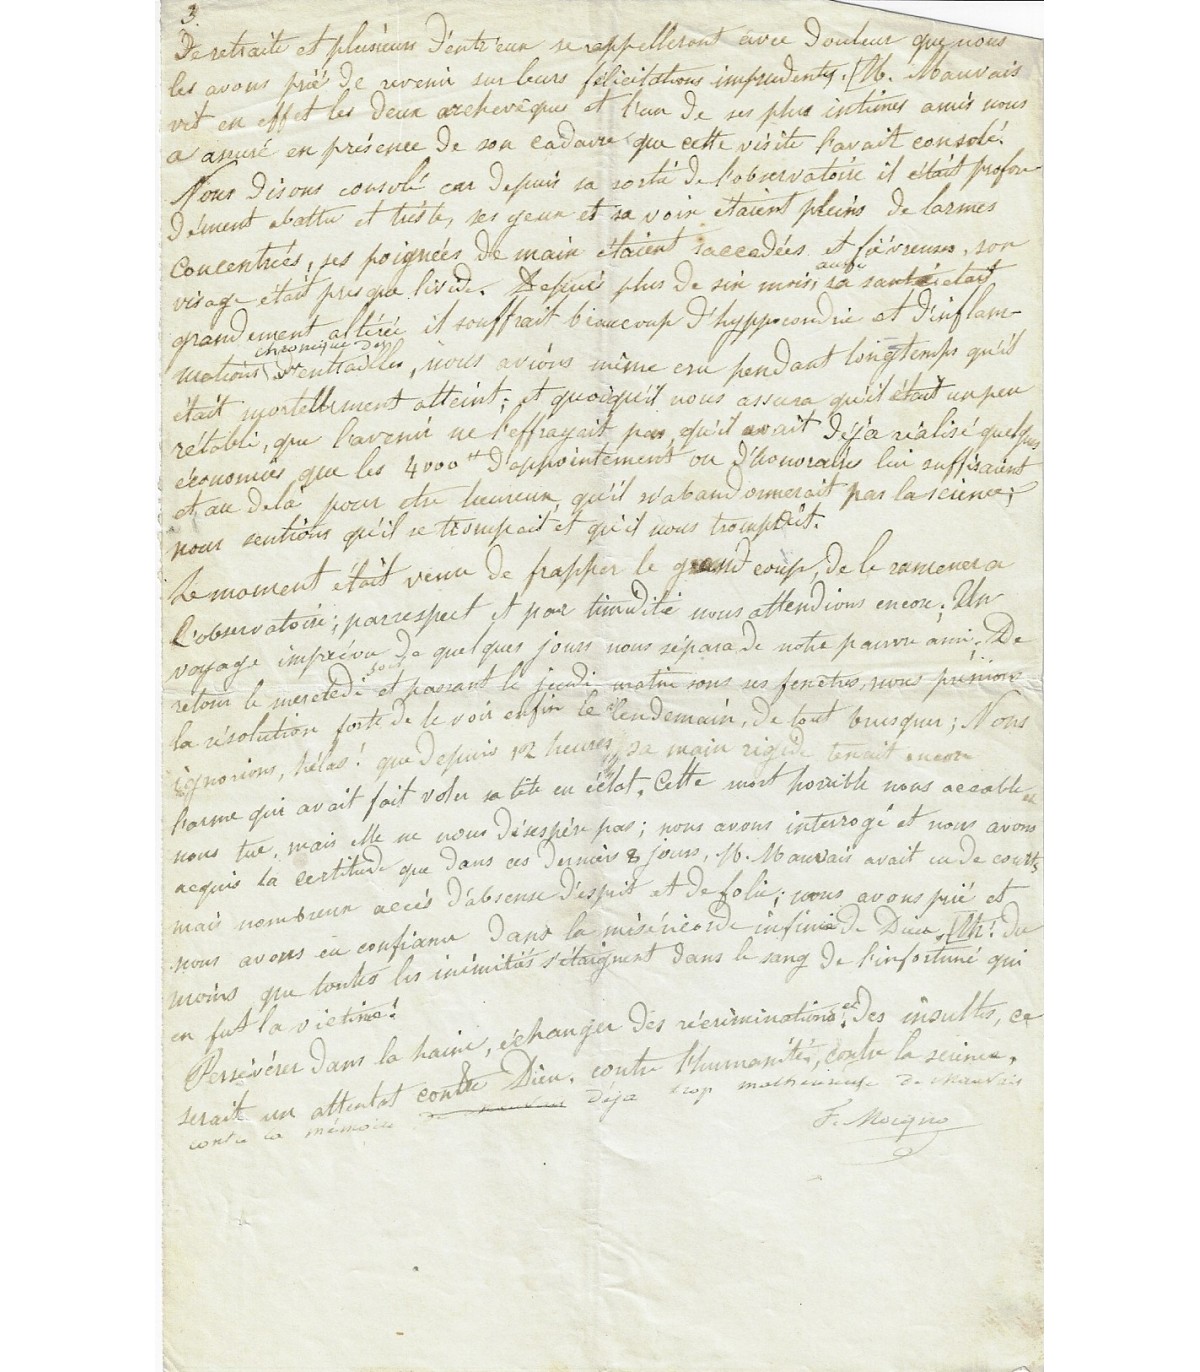 3.
De retraite et plusieurs d'entr'eux se rappelleront avec douleur que nous
les avons prié de revenir sur leurs félicitations imprudentes. [M. Mauvais
vit en effet les deux archevêques et l'un de ses plus intimes amis nous
a assuré en présence de son cadavre que cette visite l'avait consolé.
Nous disons consolé car depuis sa sortie de l'observatoire il était profon
dément abattu et triste, ses yeux et sa voix étaient pleins de larmes
concentrées, ses poignées de main étaient saccadées et fiévreuses, son
visage était presque livide. Depuis plus de six mois, aussi sa santé était
grandement altérée il souffrait beaucoup d'hyppocondrie et d'inflam-
mations chronique des entrailles, nous avions même cru pendant longtemps qu'il
était mortellement atteint; et quoiqu'il nous assura qu'il était un peu
rétabli, que l'avenir ne l'effrayait pas, qu'il avait déjà réalisé quelques
économies que les 4000 d'appointement ou d'honoraires lui suffisaient
et au delà pour etre heureux, qu'il n'abandonnerait pas la science;
nous sentions qu'il se trompait et qu'il nous trompait.
Le moment était venu de frapper le grand coup, de le ramener a
l'observatoire; par respect et par timidité nous attendions encore; Un
voyage imprévu de quelques jours nous sépara de notre pauvre ami. De
retour le mercredi soir et passant le jeudi matin sous ses fenêtres, nous prenions
la résolution forte de le voir enfin le lendemain, de tout brusquer; Nous
ignorions, hélas! que depuis 12 heures sa main rigide tenait encore
l'arme qui avait fait voler sa tête en éclat. Cette mort horrible nous accable et
nous tue, mais elle ne nous désespère pas; nous avons interrogé et nous avons
acquis la certitude que dans ces derniers 8 jours, M. Mauvais avait eu de courts,
mais nombreux accès d'absense d'esprit et de folie; nous avons prié et
nous avons eu confiance dans la miséricorde infinie de Dieu. [Ah! du
moins que toutes les inimitiés s'éteignent dans le sang de l'infortuné qui
en fut la victime!
Persévérer dans la haine, échanger des récriminations et des insultes, ce
serait un attentat contre Dieu, contre l'humanité, contre la science,
contre la mémoire déjà trop malheureuse de Mauvais
F. Moigno